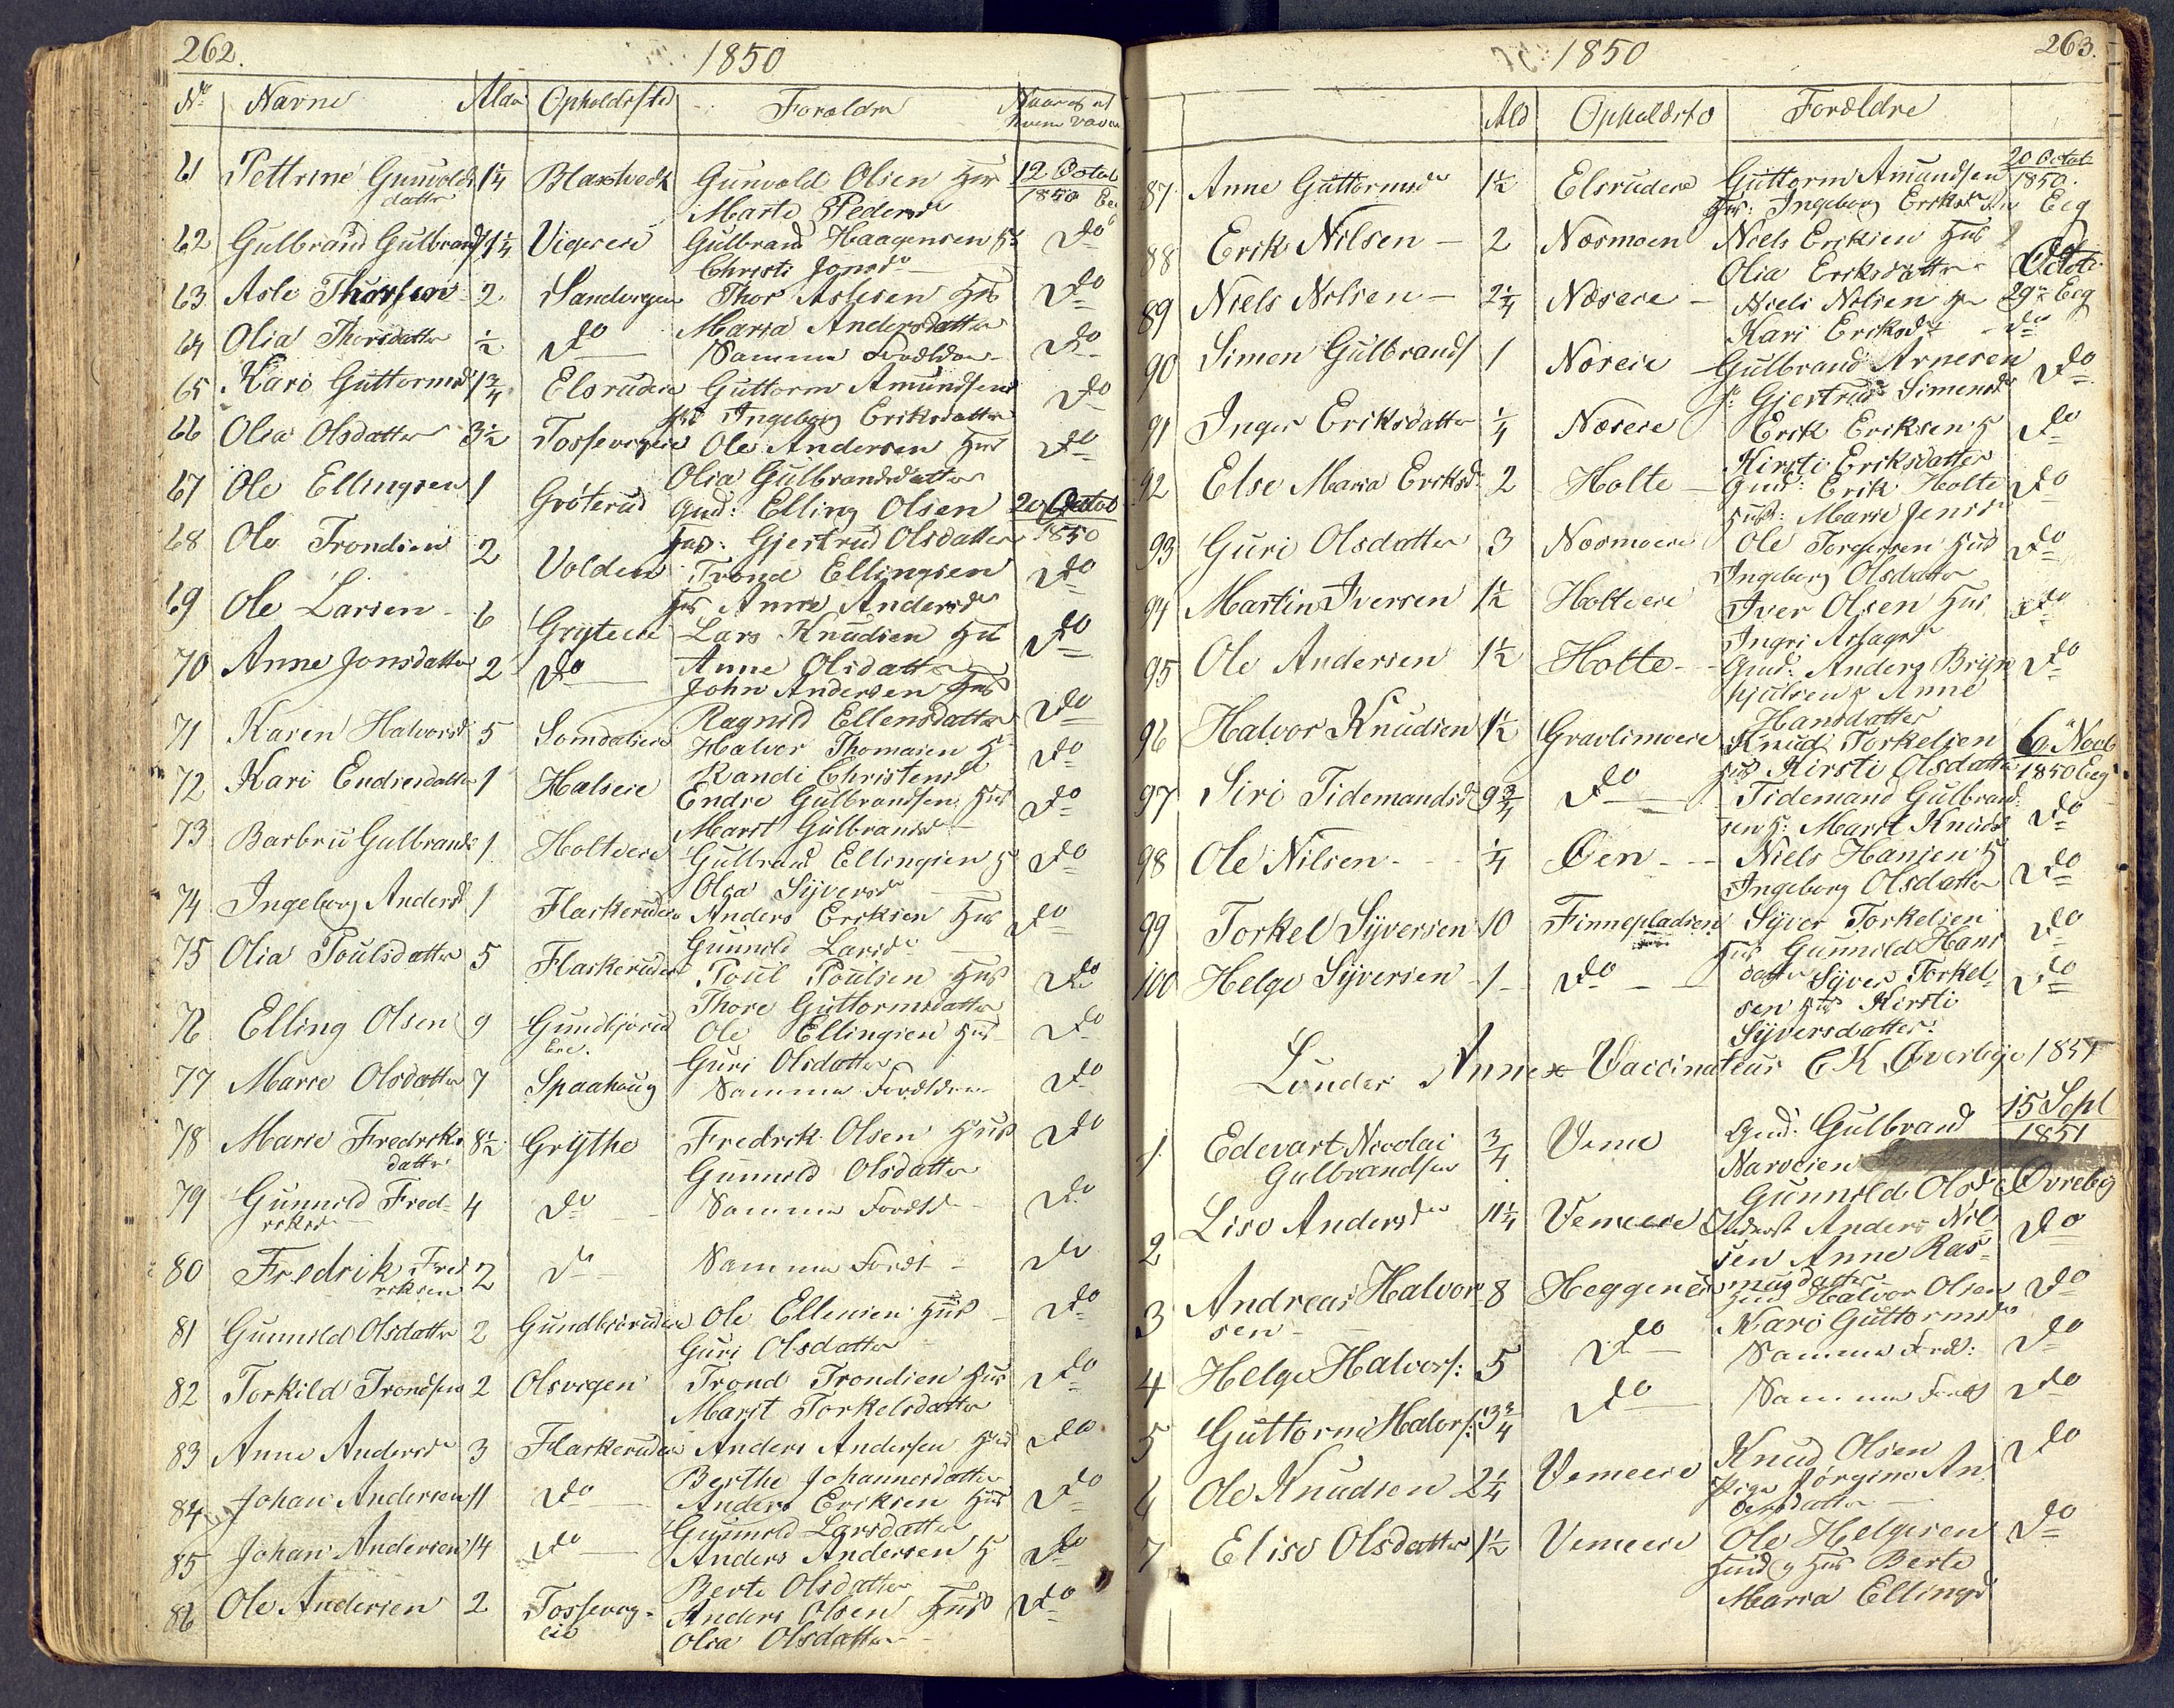 262.
1850
No Navne Alder Opholdssted Forældre Naar og af hvem Vacc
61 Pettrine Gunvolds 1¼ Gunvold Olsen Hus 12 Octob
datter Marte Pedersdr 1850
62 Gulbrand Gulbrands 1¼ Viegereie Gulbrand Haagensen H: Do
Christi Jonsdr
63 Asle Thorsen 2 Thor Aslesen Hus Do
Maria Andersdatter
64 Olia Thorsdatter ½ Do Samme Forældre Do
65 Kari Guttormsd 1¾ Elsrudeie Guttorm Amundsen Do
Hus Ingeborg Eriksdatter
66 Olia Olsdatter 3½ Tossevigeie Ole Andersen Hus Do
Olia Gulbrandsdatter
67 Ole Ellingsen 1 Gröterud Gud: Elling Olsen 20 Octob
Hus: Gjertrud Olsdatter 1850
68 Ole Trondsen 2 Volden Trond Ellingsen Do
Hus Anne Andersdr
69 Ole Larsen 6 Gryteeie Lars Knudsen Hus Do
Anne Olsdatter
70 Anne Jonsdatter 2 Do John Andersen Hus Do
Ragnild Ellensdatter
71 Karen Halvorsd 5 Somdaleie Halvor Thomasen H Do
Randi Christensd
72 Kari Endresdatter 1 Halseie Endre Gulbrandsen Hus Do
Marit Gulbrandsd
73 Barbru Gulbrands 1 Holteeie Gulbrand Ellingsen H Do
Olea Syversdr
74 Ingeborg Andersd 1 Flaskerudeie Anders Eriksen Hus Do
Gunnild Larsdr
75 Olia Poulsdatter 5 Flaskerudeie Poul Poulsen Hus Do
Thore Guttormsdatter
76 Elling Olsen 9 Ole Ellingsen Hus Do
Guri Olsdatter
77 Marie Olsdatter 7 Spaahaug Samme Forældre Do
78 Marie Fredriks 8½ Grythe Fredrik Olsen Hus Do
datter Gunnild Olsdatter
79 Gunnild Fred- 4 Do Samme Foræld Do
riksd
80 Fredrik Fred 2 Do Samme Foræl Do
riksen
81 Gunnild Olsdatter 2 Gundbjörudeie Ole Ellensen Hus Do
Guri Olsdatter
82 Torkild Trondsen 2 Olsvigen Trond Trondsen Hus Do
Marit Torkelsdatter
83 Anne Andersdr 3 Flaskerudeie Anders Andersen Hus Do
Berthe Johannesdatter
84 Johan Andersen 11 Do Anders Eriksen Hus Do
Gunnild Larsdatter
85 Johan Andersen 14 Do Anders Andersen H Do
Berte Olsdatter
86 Ole Andersen 2 Tossevig- Anders Olsen Hus Do
eie Olia Olsdatter
1850
263.
Ald Opholdsto Forældre
87 Anne Guttormsdr 1½ Elsrudeie Guttorm Amundsen 20 Octob
Hus: Ingeborg Eriksdr 1850. Eeg
88 Erik Nilsen 2 Næsmoen Niels Eriksen Hus Do
Olia Eriksdatter
89 Niels Nilsen 2¼ Næseie Niels Nilsen Octob 29 Eeg
Kari Eriksdr Do
90 Simen Gulbrands 1 Næseie Gulbrand Arnesen Do
H: Gjertrud Simensdr
91 Inger Eriksdatter ¼ Næseie Erik Eriksen H Do
Kirsti Eriksdatter
92 Else Maria Eriksd 2 Holte Gud: Erik Holte Do
Hus: Marie Jensdr
93 Guri Olsdatter 3 Næsmoeie Ole Torgersen Hus Do
Ingeborg Olsdatter
94 Martin Iversen 1½ Holteeie Iver Olsen Hus Do
Ingri Aslagsdr
95 Ole Andersen 1½ Holte Gud: Anders Bryn Do
hjulsen H Anne
Hansdatter
96 Halvor Knudsen 1½ Gravlimoeie Knud Torkelsen 6 Novb
Hus Kirsti Olsdatter 1850 Eeg
97 Siri Tidemandsd 9¾ Do Tidemand Gulbrand- Do
sen H: Marit Knudsd
98 Ole Nilsen ¼ Öen Niels Hansen H Do
Ingeborg Olsdatter
99 Torkel Syversen 10 Finnepladsen Syver Torkelsen Do
Hus Gunnild Hans
datter
100 Helge Syversen 1 Do Syver Torkel- Do
sen Hus Kirsti
Syversdatter:
Lunder Annex Vaccinateur C K Øverbye 1851
15 Sept
1851
1 Edevart Nicolai ¾ Veme Gud: Gulbrand
Gulbrandsen Narvesen
Gunnild Olsdr Øvreby
2 Lise Andersdr 11¼ Vemeeie Inderst Anders Nil- Do
sen Anne Ras-
musdatter
3 Andreas Halvor 8 Heggeneie Hmd Halvor Olsen Do
sen Kari Guttormsdr
4 Helge Halvors: 5 Do Samme Foræl: Do
5 Guttorm Halvors: 3¾ Do Samme Foræl Do
6 Ole Knudsen 2¼ Vemeeie Knud Olsen Do
Pige Jörgine An-
dersdatter
7 Elise Olsdatter 1½ Vemeeie Ole Helgesen Do
Hmd og Hus Berte
Maria Ellingsd